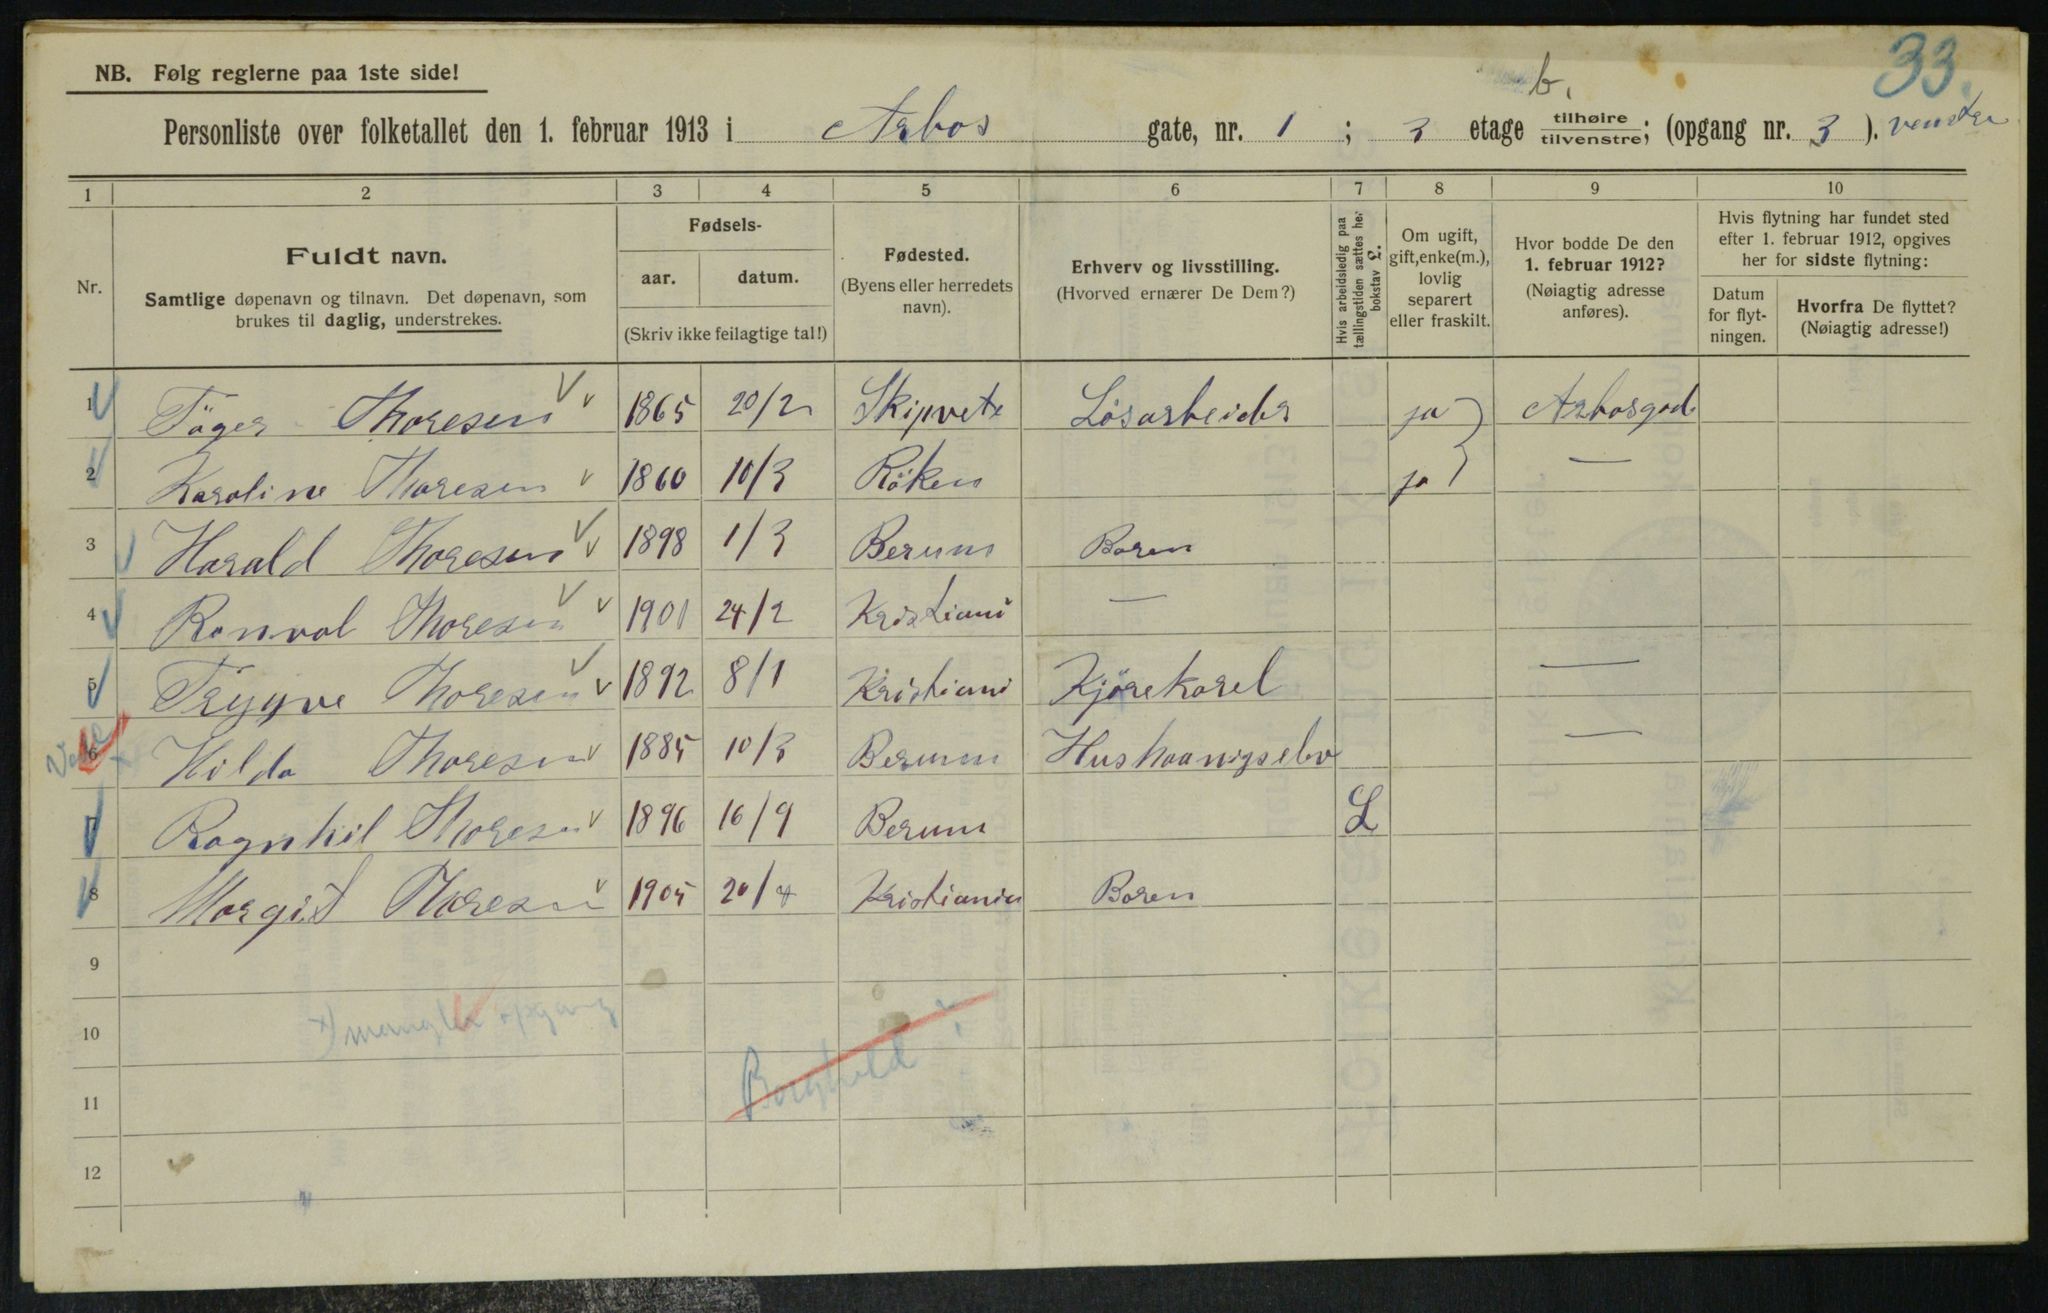 33.
NB. Følg reglerne paa 1ste side!
b.
Personliste over folketallet den 1. februar 1913 i Arbos gate, nr. 1 ; 3 etage tilhøire / tilvenstre; (opgang nr. 3 ). venstre
1 2 3 4 5 6 7 8 9 10
Nr.
Fuldt navn.
Samtlige døpenavn og tilnavn. Det døpenavn, som
brukes til daglig, understrekes.
Fødsels-
aar. datum.
(Skriv ikke feilagtige tal!)
Fødested.
(Byens eller herredets
navn).
Erhverv og livsstilling.
(Hvorved ernærer De Dem?)
Hvis arbeidsledig paa
tællingstiden sættes her
bokstav L.
Om ugift,
gift, enke(m.),
lovlig
separert
eller fraskilt.
Hvor bodde De den
1. februar 1912?
(Nøiagtig adresse
anføres).
Hvis flytning har fundet sted
efter 1. februar 1912, opgives
her for sidste flytning:
Datum
for flyt-
ningen.
Hvorfra De flyttet?
(Nøiagtig adresse!)
1 Töger Thoresen 1865 20/2 Skipvete Lösarbeider ja Arbosgad.
2 Karoline Thoresen 1860 10/3 Röken ja —
3 Harald Thoresen 1898 1/3 Berum Baren
4 Ranval Thoresen 1901 24/2 Kristiani —
5 Trygve Thoresen 1892 8/1 Kristiani Kjörekarel —
6 Hilda Thoresen 1885 10/3 Berum —
7 Ragnhil Thoresen 1896 16/9 Berum L
8 Margit Thoresen 1905 20/4 Kristiania Baren
9
10
x) mangler opgang
Borghild
11
12